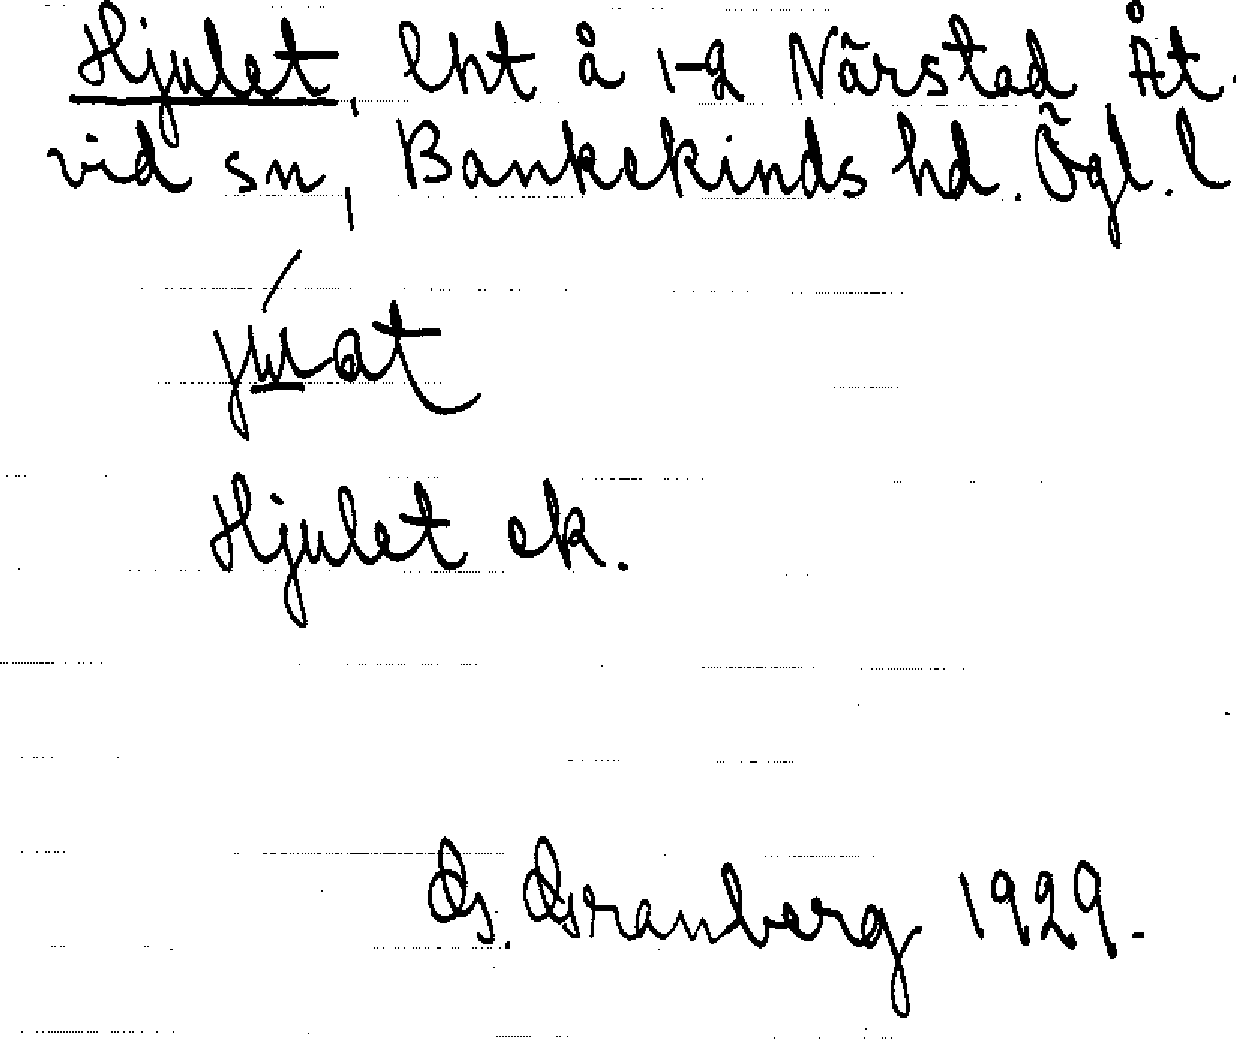 Hjulet, lht å 1-2 Närstad Åt-
vid sn, Bankekinds hd. Ögl. l
Hjulet ek.
G. Granberg 1929.